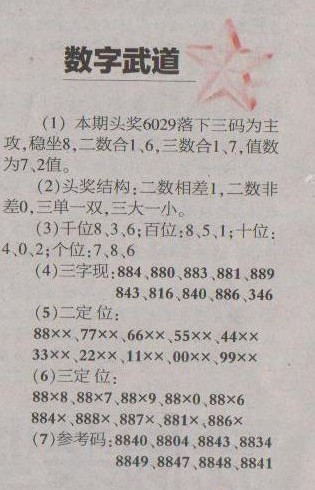 数字武道
(1) 本期头奖6029落下三码为主
攻,稳坐8,二数合1、6,三数合1、7,值数
为7、2值。
(2)头奖结构:二数相差1,二数非
差0,三单一双,三大一小。
(3)千位8、3、6;百位:8、5、1;十位:
4、0、2;个位:7、8、6
(4)三字现:884、880、883、881、889
843、816、840、886、346
(5)二定位:
88××、77××、66××、55××、44××
33××、22××、11××、00××、99××
(6)三定位:
88×8、88×7、88×9、88×0、88×6
884×、888×、887×、881×、886×
(7)参考码:8840、8804、8843、8834
8849、8847、8848、8841